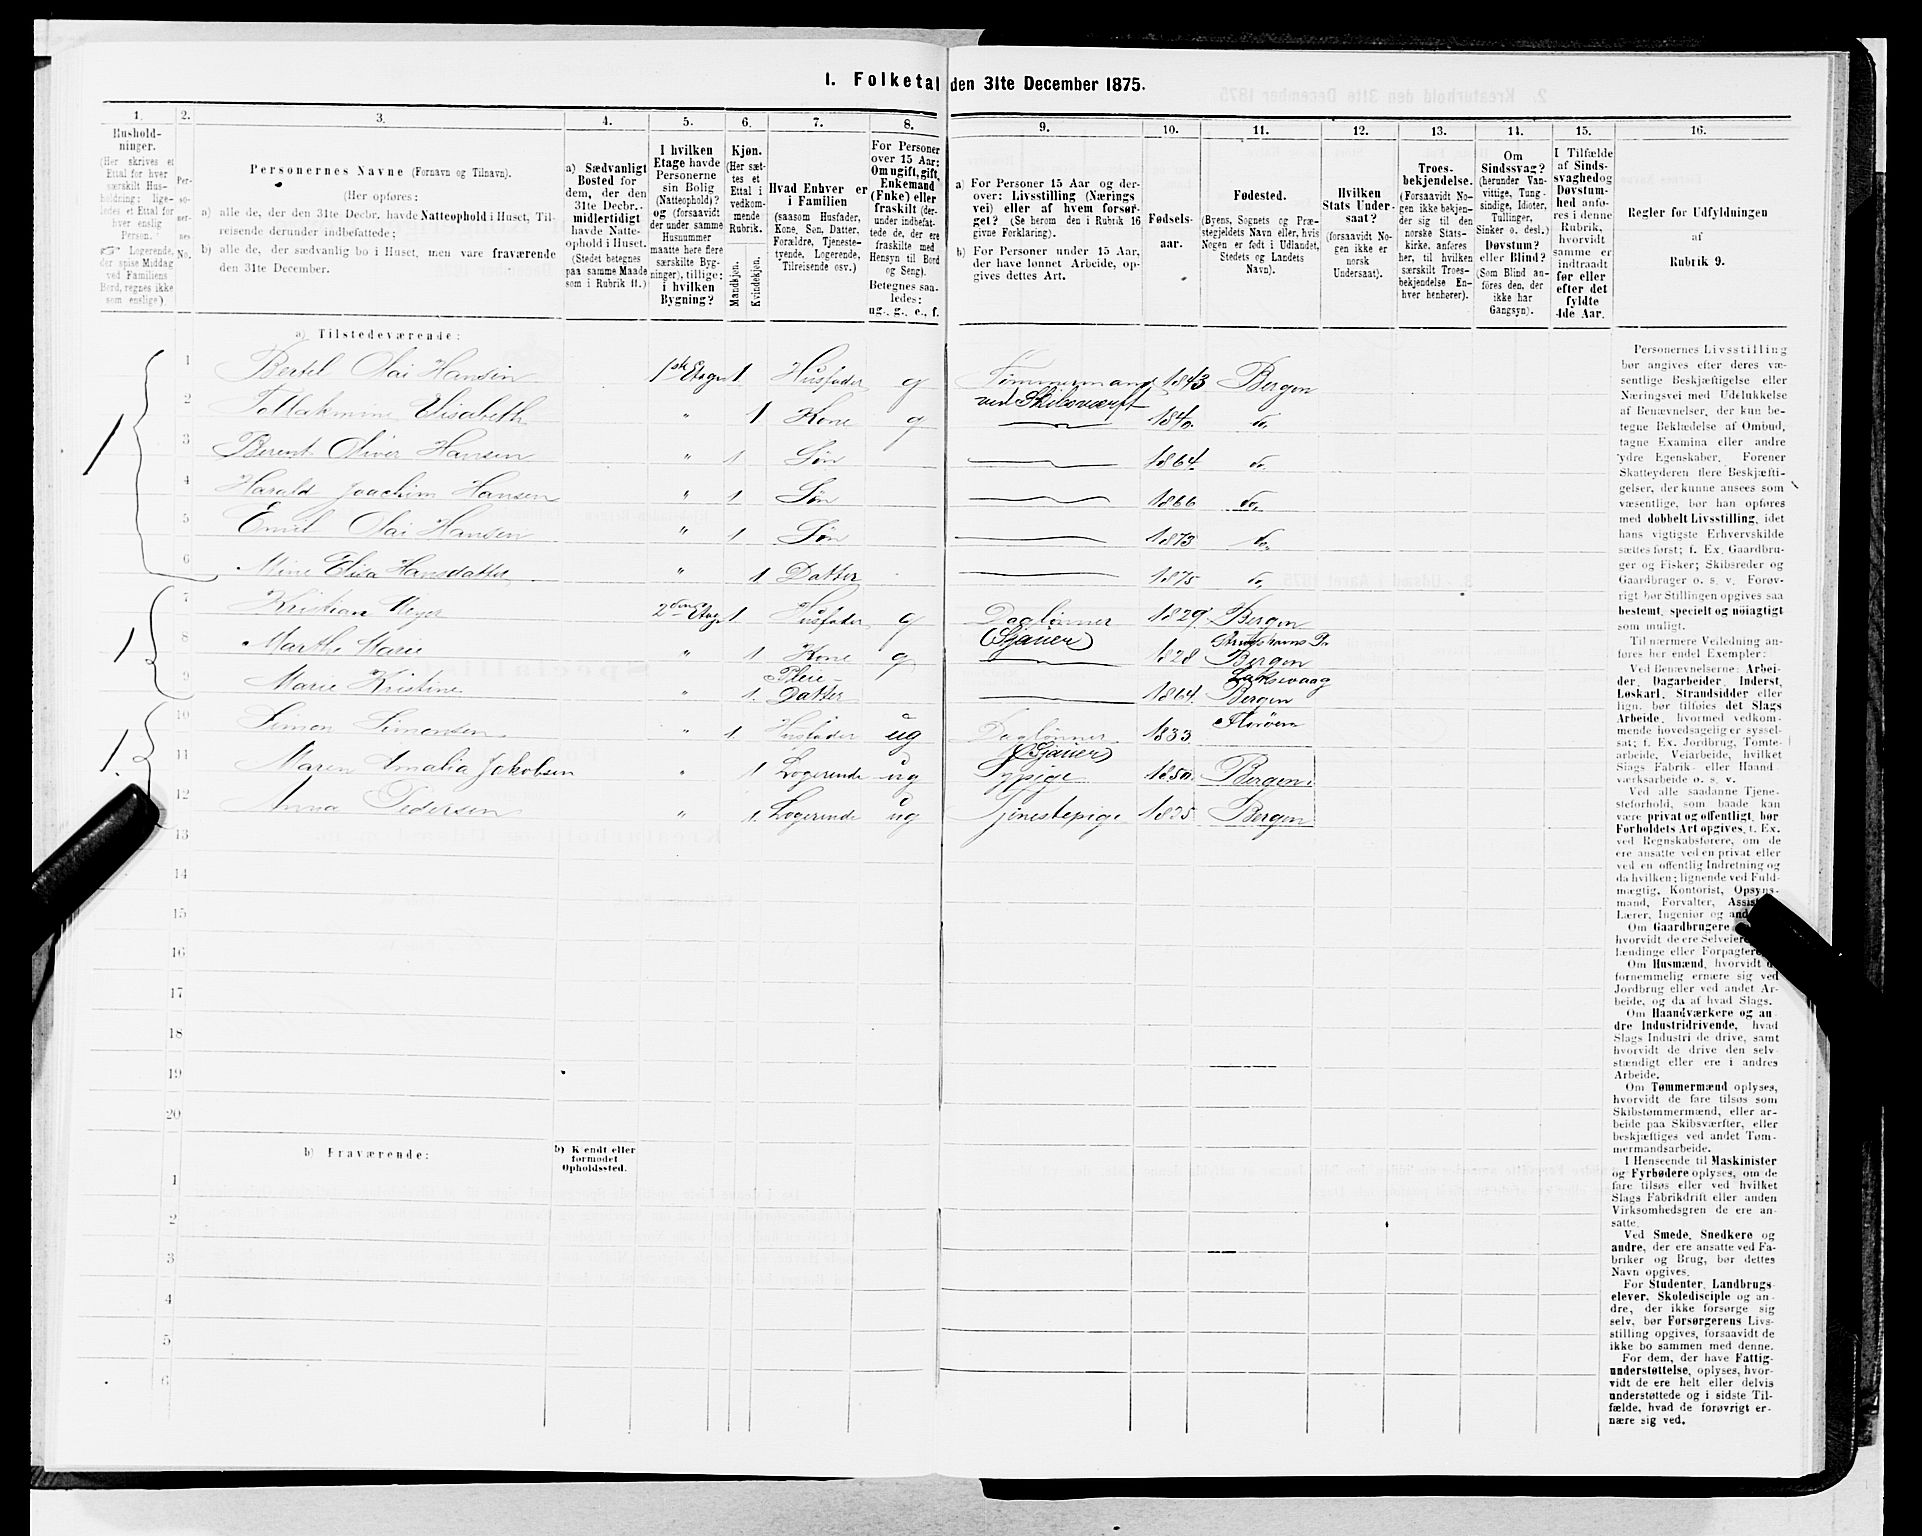 1. Folketal den 31te December 1875.
1. 2. 3. 4. 5. 6. 7. 8. 9. 10. 11. 12. 13. 14. 15. 16.
Hushold-
ninger.
(Her skrives et
Ettal for hver
særskilt Hus-
holdning; lige-
ledes et Ettal for
hver enslig
Person.
☞ Logerende,
der spise Middag
ved Familiens
Bord, regnes ikke
som enslige.)
Per-
so-
ner-
nes
No.
Personernes Navne (Fornavn og Tilnavn).
(Her opføres:
a) alle de, der den 31te Decbr. havde Natteophold i Huset, Til-
reisende derunder indbefattede;
b) alle de, der sædvanlig bo i Huset, men vare fraværende
den 31te December.
a) Sædvanligt
Bosted for
dem, der den
31te Decbr.
midlertidigt
havde Natte-
ophold i Huset.
(Stedet betegnes
paa samme Maade
som i Rubrik 11.)
I hvilken
Etage havde
Personerne
sin Bolig
(Natteophold)?
og (forsaavidt
der under samme
Husnummer
maatte høre flere
særskilte Byg-
ninger), tillige:
i hvilken
Bygning?
Kjøn.
(Her sæt-
tes et
Ettal i
vedkom-
mende
Rubrik.
Mandkjøn.
Kvindekjøn.
Hvad Enhver er
i Familien
(saasom Husfader,
Kone, Søn, Datter,
Forældre, Tjeneste-
tyende, Logerende,
Tilreisende osv.)
For Personer
over 15 Aar:
Om ugift, gift,
Enkemand
(Enke) eller
fraskilt (der-
under indbefat-
tede de, der ere
fraskilte med
Hensyn til Bord
og Seng).
Betegnes saa-
ledes:
ug., g., e., f.
a) For Personer 15 Aar og der-
over: Livsstilling (Nærings
vei) eller af hvem forsør-
get? (Se herom den i Rubrik 16
givne Forklaring).
b) For Personer under 15 Aar,
der have lønnet Arbeide, op-
gives dettes Art.
Fødsels-
aar.
Fødested.
(Byens, Sognets og Præ-
stegjeldets Navn eller, hvis
Nogen er født i Udlandet,
Stedets og Landets
Navn).
Hvilken
Stats Under-
saat?
(forsaavidt No-
gen ikke er
norsk
Undersaat).
Troes-
bekjendelse.
(Forsaavidt No-
gen ikke bekjen-
der sig til den
norske Stats-
kirke, anføres
her, til hvilken
særskilt Troes-
bekjendelse En-
hver henhører).
Om
Sindssvag?
(herunder Van-
vittige, Tung-
sindige, Idioter,
Tullinger,
Sinker o. desl.)
Døvstum?
eller Blind?
(Som Blind an-
føres den, der
ikke har
Gangsyn).
I Tilfælde
af Sinds-
svaghed og
Døvstum-
hed anfø-
res i denne
Rubrik,
hvorvidt
samme er
indtraadt
før eller
efter det
fyldte
4de Aar.
Regler før Udfyldningen
af
Rubrik 9.
a) Tilstedeværende:
1 Bertel Olai Hansen 1ste Etage 1 Husfader g Tømmermand 1843 Bergen
ved Skibsværft
2 Tollakmine Elisabeth " 1 Kone g 1840 do
3 Berent Oliver Hansen " 1 Søn 1864 do
4 Harald Joachim Hansen " 1 Søn 1866 do
5 Emil Olai Hansen " 1 Søn 1873 do
6 Mine Elisa Hansdatter " 1 Datter 1875 do
1
7 Kristian Meyer 2den Etage 1 Husfader g Daglønner 1829 Bergen
(Sjauer)
8 Marthe Marie " 1 Kone g 1828 Bergen
9 Marie Kristine " 1 Pleie-
Datter 1864 Laksevaag
Bergen
1
10 Simon Simonsen " 1 Husfader ug Daglønner 1833 Florøen
(Sjauer)
11 Maren Amalia Jakobsen " 1 Logerende ug Sypige 1850 Bergen
12 Anna Pedersen " 1 Logerende ug Tjenestepige 1835 Bergen
1
13
14
15
16
17
18
19
20
b) Fraværende:
b) Kjendt eller
formodet
Opholdssted.
1
2
3
4
5
6
Personernes Livsstilling
bør angives efter deres væ-
sentlige Beskjæftigelse eller
Næringsvei med Udelukkelse
af Benævnelser, der kun be-
tegne Beklædelse af Ombud,
tagne Examina eller andre
ydre Egenskaber. Forener
Skatteyderen flere Beskjæfti-
gelser, der kunne ansees som
væsentlige, bør han opføres
med dobbelt Livsstilling, idet
hans vigtigste Erhvervskilde
sættes først; f. Ex. Gaardbru-
ger og Fisker; Skibsreder og
Gaardbruger o. s. v. Forøv-
rigt bør Stillingen opgives saa
bestemt, specielt og nøiagtigt
som muligt.
Til nærmere Veiledning an-
føres her endel Exempler:
Ved Benævnelserne: Arbei-
der, Dagarbeider, Inderst,
Løskarl, Strandsidder eller
lign. bør tilføies det Slags
Arbeide, hvormed vedkom-
mende hovedsagelig er syssel-
sat; f. Ex. Jordbrug, Tomte-
arbeide, Veiarbeide, hvilket
Slags Fabrik- eller Haand
værksarbeide o. s. v.
Ved alle saadanne Tjene-
steforhold, som baade kan
være privat og offentligt, bør
Forholdets Art opgives, t. Ex.
ved Regnskabsførere, om de
ere ansatte ved en privat eller
ved en offentlig Indretning og
da hvilken; lignende ved Fuld-
mægtig, Kontorist, Opsyns-
mand, Forvalter,
Lærer, Ingeniør og
Om Gaardbrugere
hvorvidt de ere
lændinge eller
Om Husmænd, hvorvidt
fornemmelig ernære sig ved
Jordbrug eller ved andet Ar-
beide, og da af hvad Slags.
Om Haandværkere og an
dre Industridrivende, hvad
Slags Industri de drive, samt
hvorvidt de drive den selv-
stændigt eller ere i andres
Arbeide.
Om Tømmermænd oplyses,
hvorvidt de fare tilsøs som
Skibstømmermænd, eller ar-
beide paa Skibsværfter, eller
beskjæftiges ved andet Tøm-
mermandsarbeide.
I Henseende til Maskinister
og Fyrbødere oplyses, om de
fare tilsøs eller ved hvilket
Slags Fabrikdrift eller anden
Virksomhedsgren de ere an-
satte.
Ved Smede, Snedkere og
andre, der ere ansatte ved Fa-
briker og Brug, bør dettes
Navn opgives.
For Studenter, Landbrugs-
elever, Skoledisciple og an-
dre, der ikke forsørge sig
selv, bør Forsørgerens Livs-
stilling opgives, forsaavidt de
ikke bo sammen med denne.
For dem, der have Fattig-
understøttelse, oplyses, hvor-
vidt de ere helt eller delvis
understøttede og i sidste Til-
fælde, hvad de forøvrigt er-
nære sig ved.